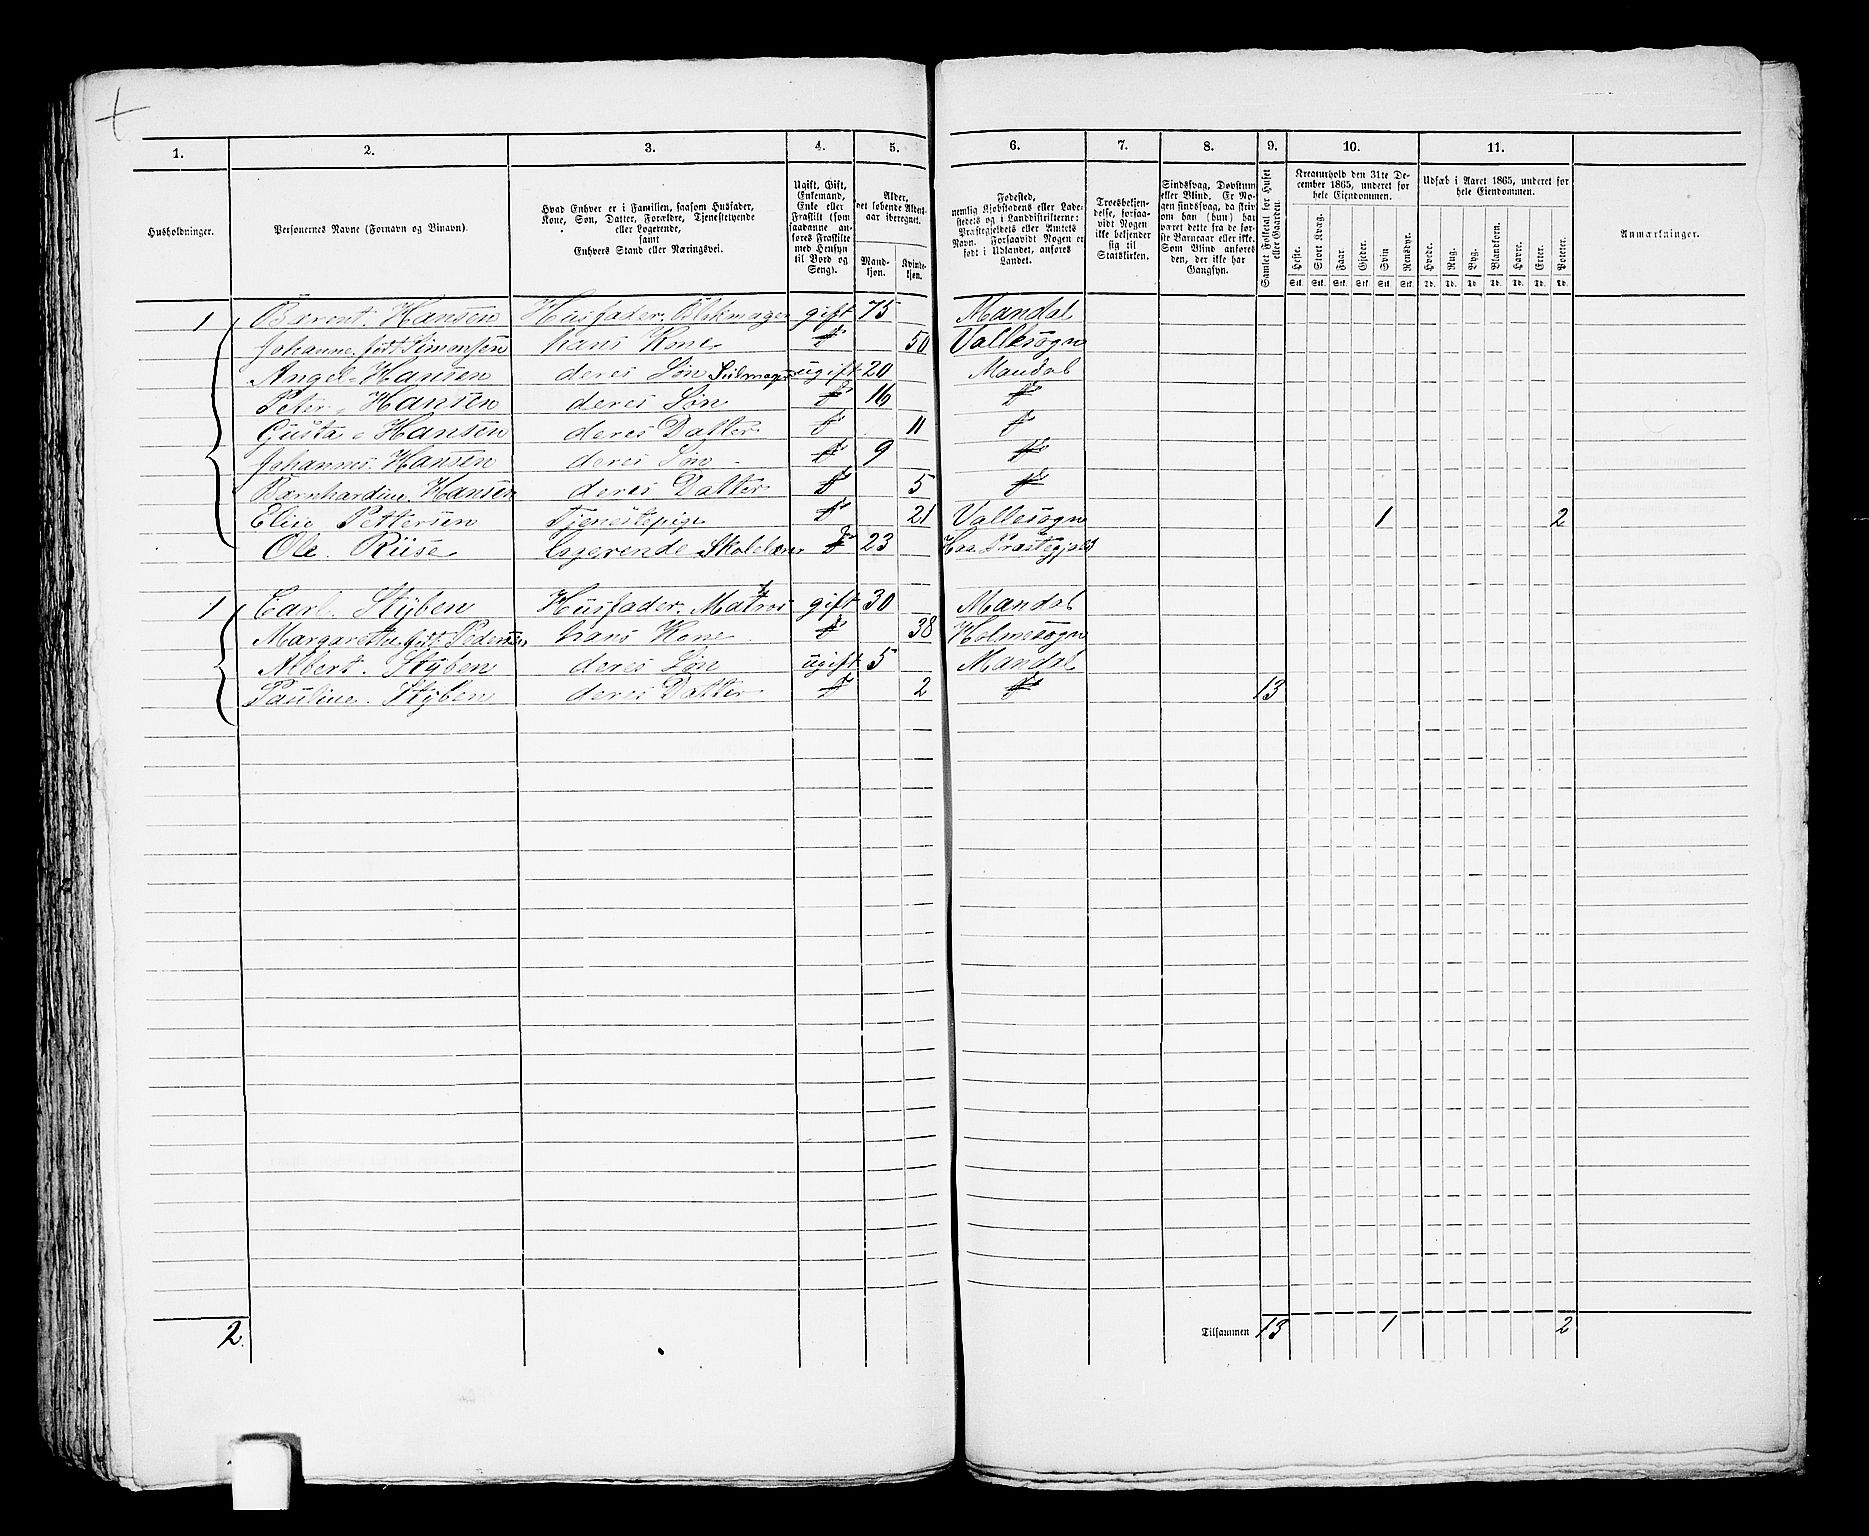 1. 2. 3. 4. 5. 6. 7. 8. 9. 10. 11.
Husholdninger.
Personernes Navne (Fornavn og Binavn).
Hvad Enhver er i Familien, saasom Husfader,
Kone, Søn, Datter, Forældre, Tjenestetyende
eller Logerende,
samt
Enhvers Stand eller Næringsvei.
Ugift, Gift,
Enkemand,
Enke eller
Fraskilt (som
saadanne an-
føres Fraskilte
med Hensyn
til Bord og
Seng).
Alder,
det løbende Alders-
aar iberegnet.
Mand-
kjøn.
Kvinde-
kjøn.
Fødested,
nemlig Kjøbstadens eller Lade-
stedets og i Landdistrikterne:
Præstegjeldets eller Amtets
Navn. Forsaavidt Nogen er
født i Udlandet, anføres
Landet.
Troesbekjen-
delse, forsaa-
vidt Nogen
ikke bekjender
sig til
Statskirken.
Sindssvag, Døvstum
eller Blind. Er No-
gen sindssvag, da skriv
om han (hun) har
været dette fra de før-
ste Barneaar eller ikke.
Som Blind anføres
den, der ikke har
Gangsyn.
Samlet Folketal for Huset
eller Gaarden.
Kreaturhold den 31te De-
cember 1865, anført for
hele Eiendommen.
Heste. Stort Kvæg. Faar. Gjeder. Svin. Rensdyr.
Stk. Stk. Stk. Stk. Stk. Stk.
Udsæd i Aaret 1865, anført for
hele Eiendommen.
Hvede. Rug. Byg. Blandkorn. Havre. Erter. Poteter.
Td. Td. Td. Td. Td. Td. Td.
Anmærkninger.
1 Bærent Hansen Husfader. Blikmager gift 75 Mandal
Johanne født Simonsen hans Kone 50 Vallesogn
Angel Hansen deres Søn Seilmager ugift 20 Mandal
Peter Hansen deres Søn 16
Gusta Hansen deres Datter 11
Johannes Hansen deres Søn 9
Bærnhardine Hansen deres Datter 5
Elise Pettersen Tjenestepige 21 Vallesogn 1 2
Ole Riise logerende Skolelærer 23 Præstegjæld
1 Carl Stÿben Husfader. Matros gift 30 Mandal
Margarethe født Pedersen hans Kone 38 Holmesogn
Albert Stÿben deres Søn ugift 5 Mandal
Pauline Stÿben deres Datter 2 13
2. Tilsammen 13 1 2